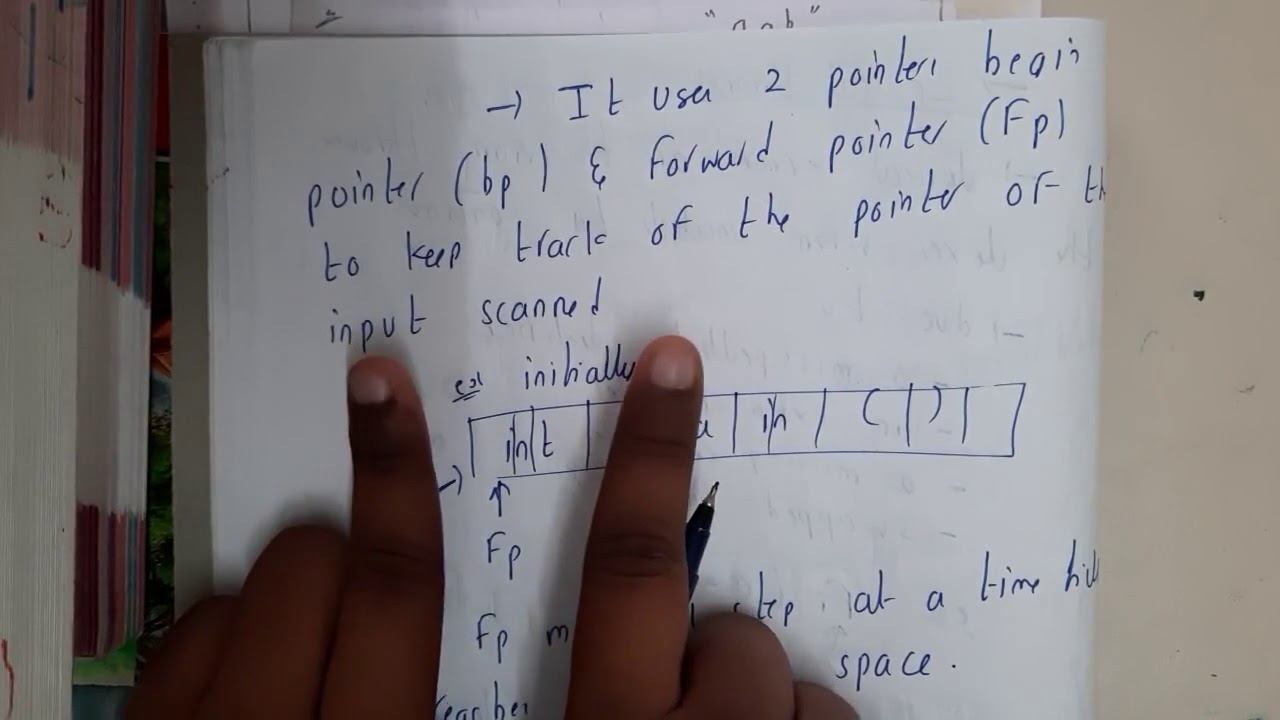 → It uses 2 pointers begin
pointer (bp) & forward pointer (Fp)
to keep track of the pointer of th
input scanned
ex: initially
int in ( )
Fp
Fp step at a time
space.